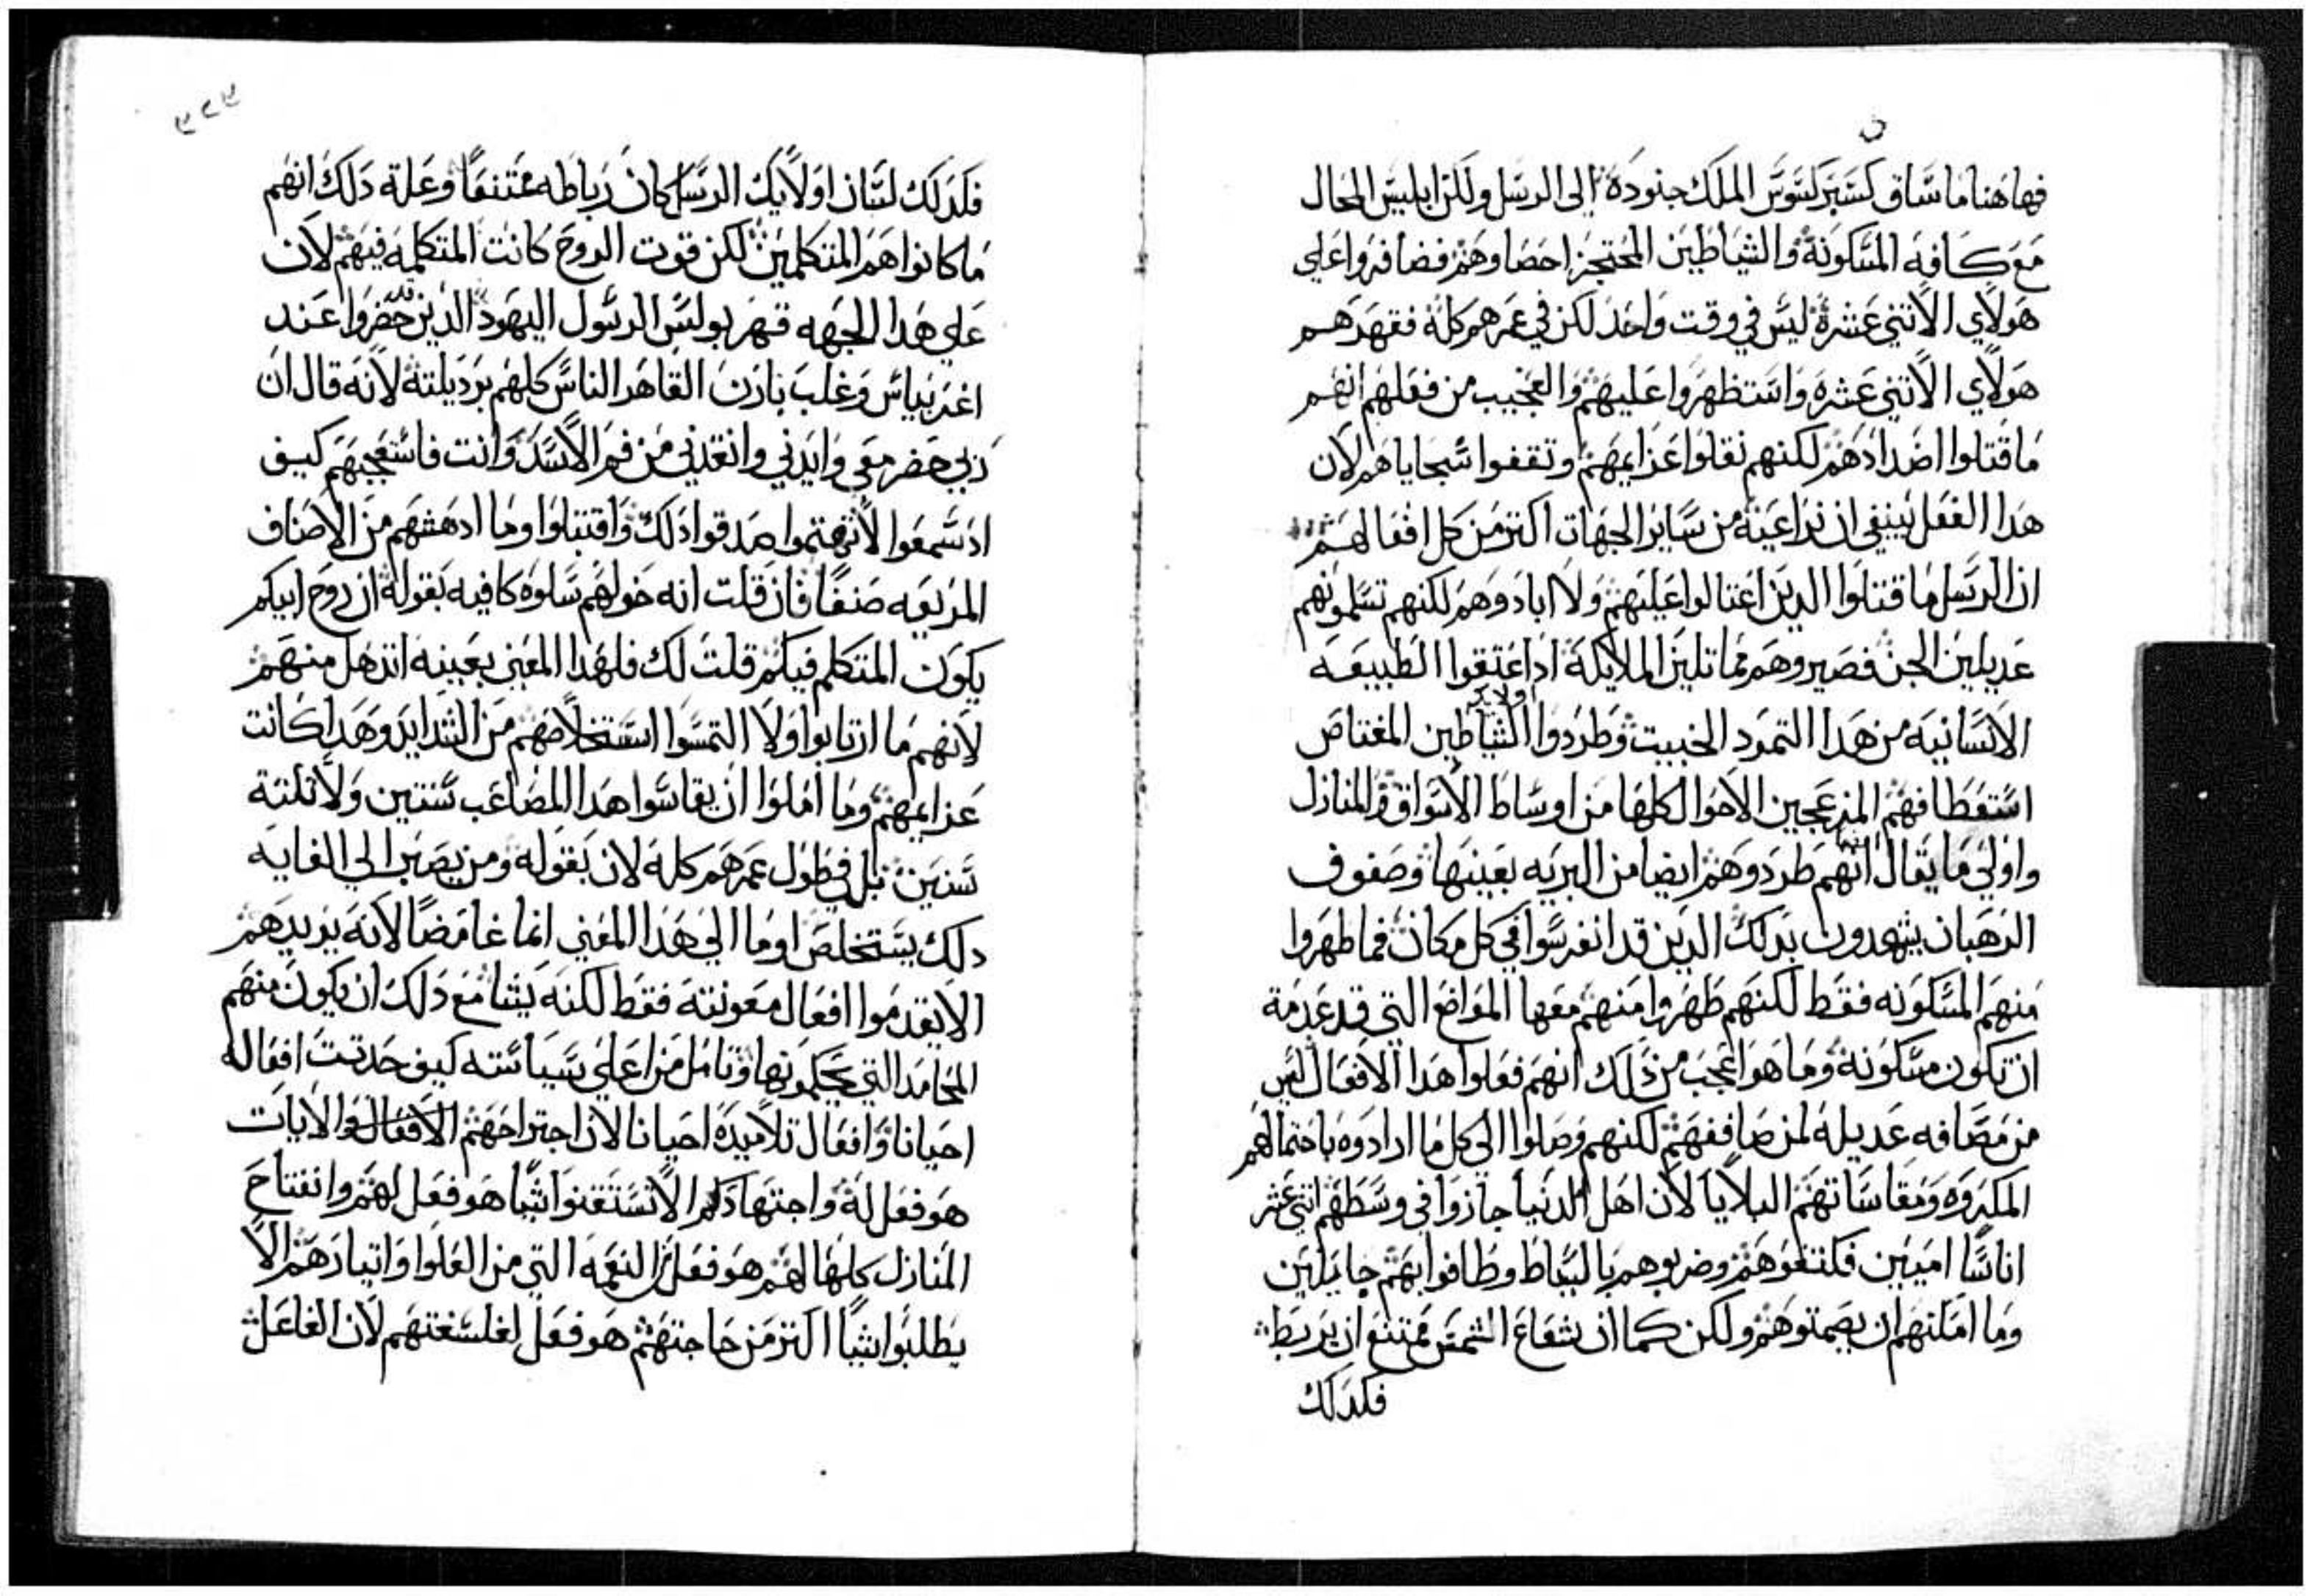 فهاهنا ما ساق كسبركسوس الملك جنوده الى الرسل ولكن ابليس المحال
مع كافة المسكونة والشياطين المحتجز احصاوهم فضافروا علي
هولاي الاتني عشرة ليس في وقت واحد لكن في عمرهم كله فقهرهم
هولاي الاتني عشرة واستظهروا عليهم والعجيب من فعلهم انهم
ما قتلوا اضدادهم لكنهم نقلوا عزايمهم وتقفوا سجاياهم لان
هدا الفعل ينبغي ان نراعينه من ساير الجهات اكتر من كل افعالهم
ان الرسل ما قتلوا الدين اغتالوا عليهم ولا ابادوهم لكنهم تسلموهم
عديلين الجن فصيروهم مماتلين الملايكة ادا اعتقوا الطبيعه
الانسانيه من هدا التمرد الخبيت وطردوا الشياطين المغتاص
استعطافهم المنزعجين الاحوال كلها من اوساط الاسواق والمنازل
واولي ما يقال انهم طردوهم ايضا من البريه بعينها وصفوف
الرهبان يشهدون بدلك الدين قد انغرسوا في كل مكان فما طهروا
منهم المسكونه فقط لكنهم طهروا منهم معها المواضع التي قد عدمة
ان تكون مسكونة وما هو اعجب من دلك انهم فعلوا هدا الافعال ليس
من مصافه عديلة لمن صاففهم لكنهم وصلوا الي كل ما ارادوه باحتمالهم
المكروه ومقاساتهم البلايا لان اهل الدنيا حازوا في وسطهم اتني عشر
اناسا اميين فكتفوهم وضربوهم بالسياط وطافوا بهم جايلين
وما امكنهم ان يصمتوهم ولكن كما ان شعاع الشمس ممتنع ان يربط
فكدلك
٣٢٣
فكدلك لسان اولايك الرسل كان رباطه ممتنعا وعلة دلك انهم
ما كانوا هم المتكلمين لكن قوت الروح كانت المتكلمه فيهم لان
علي هدا الجهه قهر بولس الرسول اليهود الدين حضروا عند
اغريباس وغلب نارن القاهر الناس كلهم برديلته لانه قال ان
ربي حضر معي وايدني وانقدني من فم الاسد وانت فاستعجبهم كيف
اد سمعوا لا تهتموا صدقوا دلك واقتبلوا وما ادهشهم من الاصناف
المريعه صنفا فان قلت انه خولهم سلوه كافيه بقوله ان روح ابيكم
يكون المتكلم فيكم قلت لك فلهدا المعني بعينه اندهل منهم
لانهم ما ارتابوا ولا التمسوا استخلاصهم من الشدايد وهدا كانت
عزايمهم وما املوا ان يقاسوا هدا المصاعب سنتين ولا تلتة
سنين بل في طول عمرهم كله لان بقوله ومن يصبر الي الغايه
دلك يستخلص اوما الي هدا المعني ايما غامضا لانه يريدهم
الا يقدموا افعال معونته فقط لكنه يشا مع دلك ان يكون منهم
المحامد التي يحكمونها وتامل من اعلي سياسته كيف حدتت افعاله
احيانا وافعال تلاميده احيانا لان اجتراحهم الافعال والايات
هو فعل له واجتهادهم الا يستقنوا شيا هو فعل لهم وانفتاح
المنازل كلها لهم هو فعل النعمه التي من العلوا واتيارهم الا
يطلبوا شيا اكتر من حاجتهم هو فعل لفلسفتهم لان الفاعل